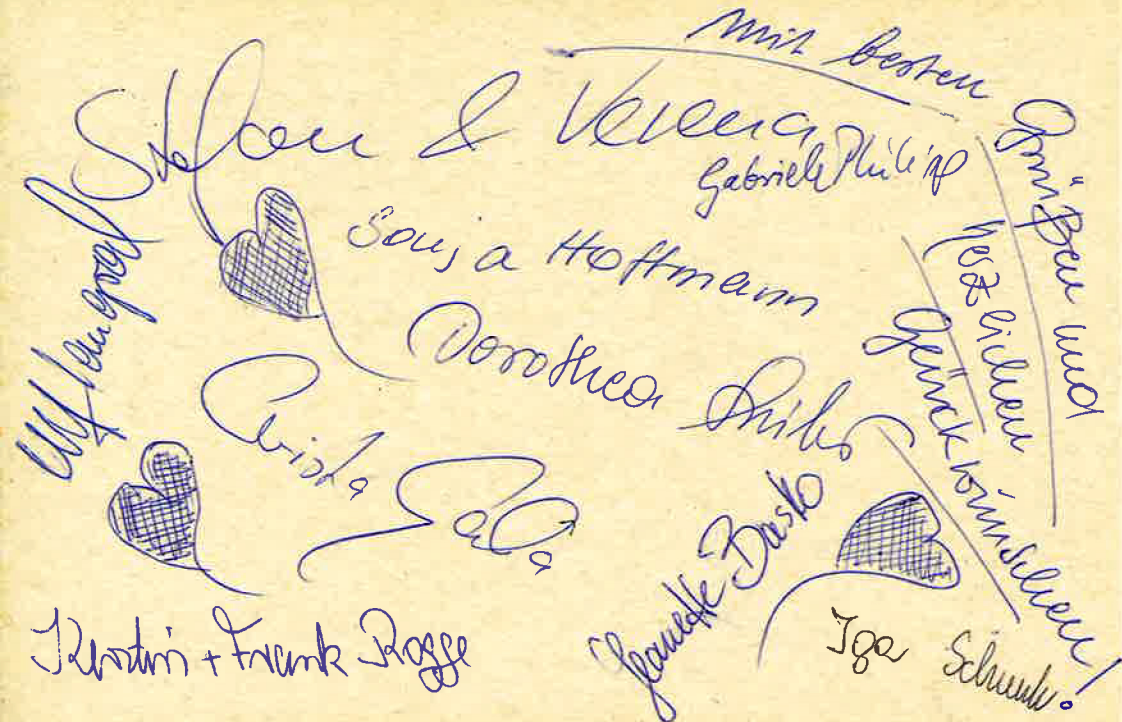 mit besten
Grüßen und
herzlichen
Glückwünschen!
Stefan & Verena
Gabriele Philipp
Sonja Hoffmann
Dorothea
Christa
Jeanette Busko
Kerstin + Frank Rogge
Iga